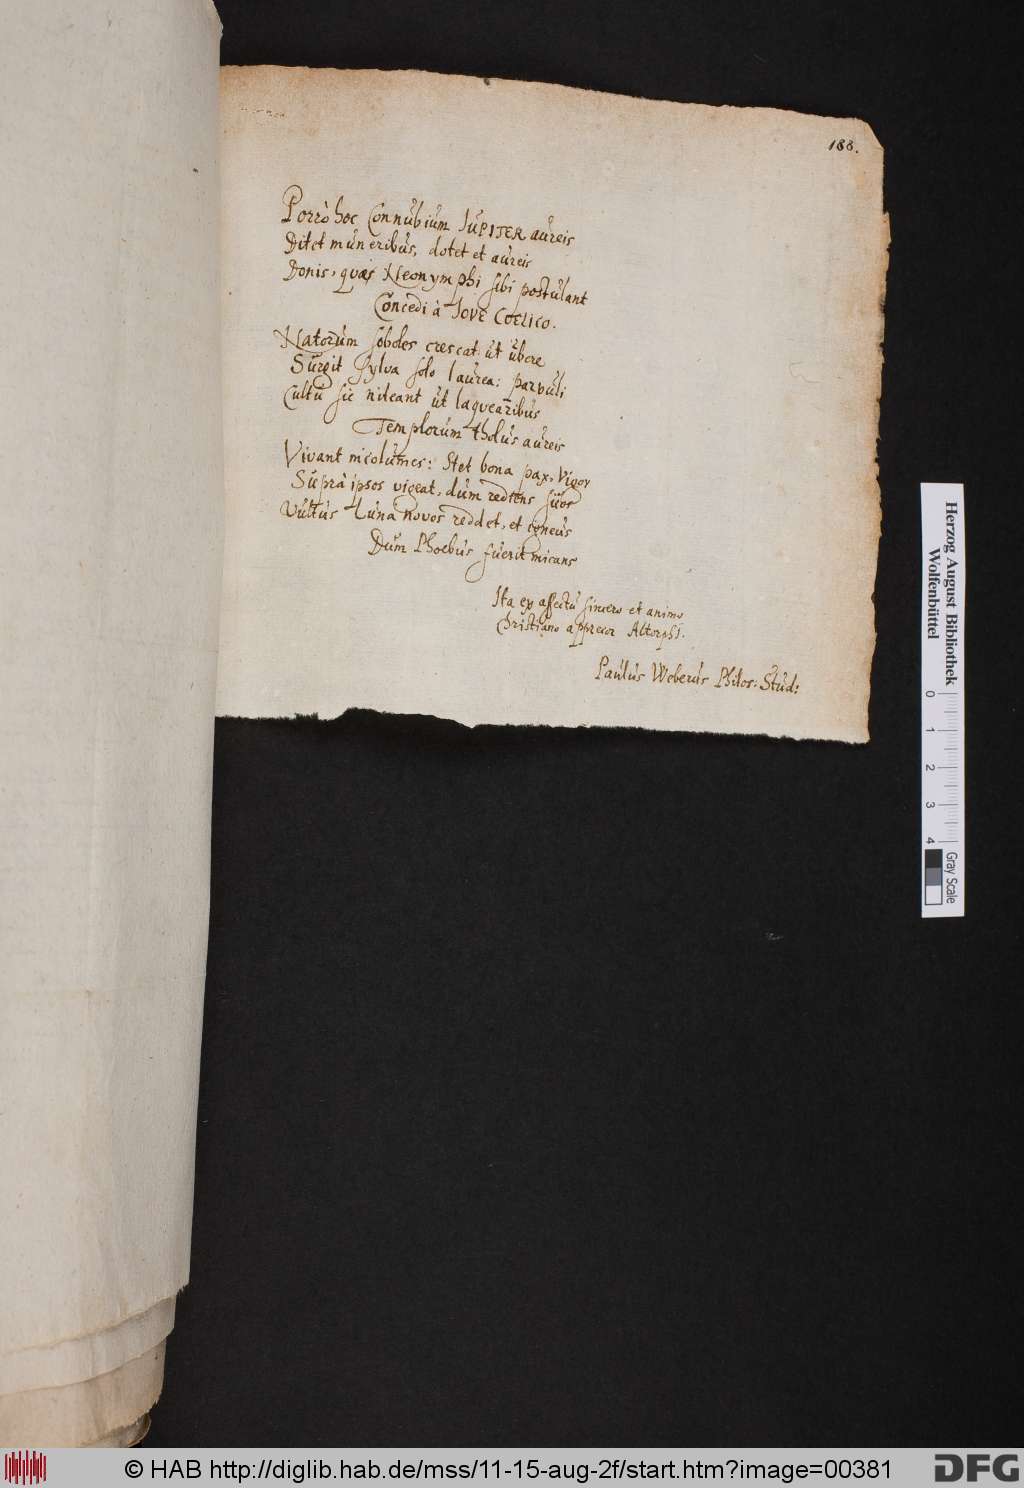 188.
Porrò hoc Connubium IUPITER aureis
Ditet muneribus, dotet et aureis
Donis, quæis Neonymphi sibi postulant
Concedi à IOVE COELICO.
Natorum soboles crescat: ut ubere
Surgit sylva solo laurea: parvuli
Cultu sic niteant ut laquearibus
Templorum tholus aureis
Vivant incolumes: Stet bona pax, Vigor
Suprà ipsos vigeat, dum rediens suos
Vultus Luna novos reddet, et igneus
Dum Phoebus fuerit micans
Ita ex affectu sincero et animo
Christiano apprecor Altorphi.
Paulus Weberus Philos: Stud:
Herzog August Bibliothek
Wolfenbüttel
0 1 2 3 4
Gray Scale
© HAB http://diglib.hab.de/mss/11-15-aug-2f/start.htm?image=00381
DFG